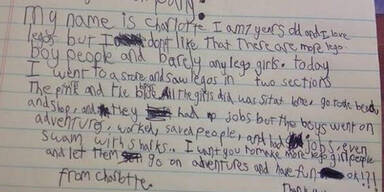 My name is charlotte I am 7 years old and I love
legos but I dont like that There are more lego
boy people and barely any lego girls. today
I went to a store and saw legos in two sections
The pink and the blue. All the girls did was sit at home, go to the beach,
and shop, and they had no jobs but the boys went on
adventures, worked, saved people, and had jobs, even
swam with sharks. I want you to make more lego girl people
and let them go on adventures and have fun ok!?!
from charlotte.
Thank